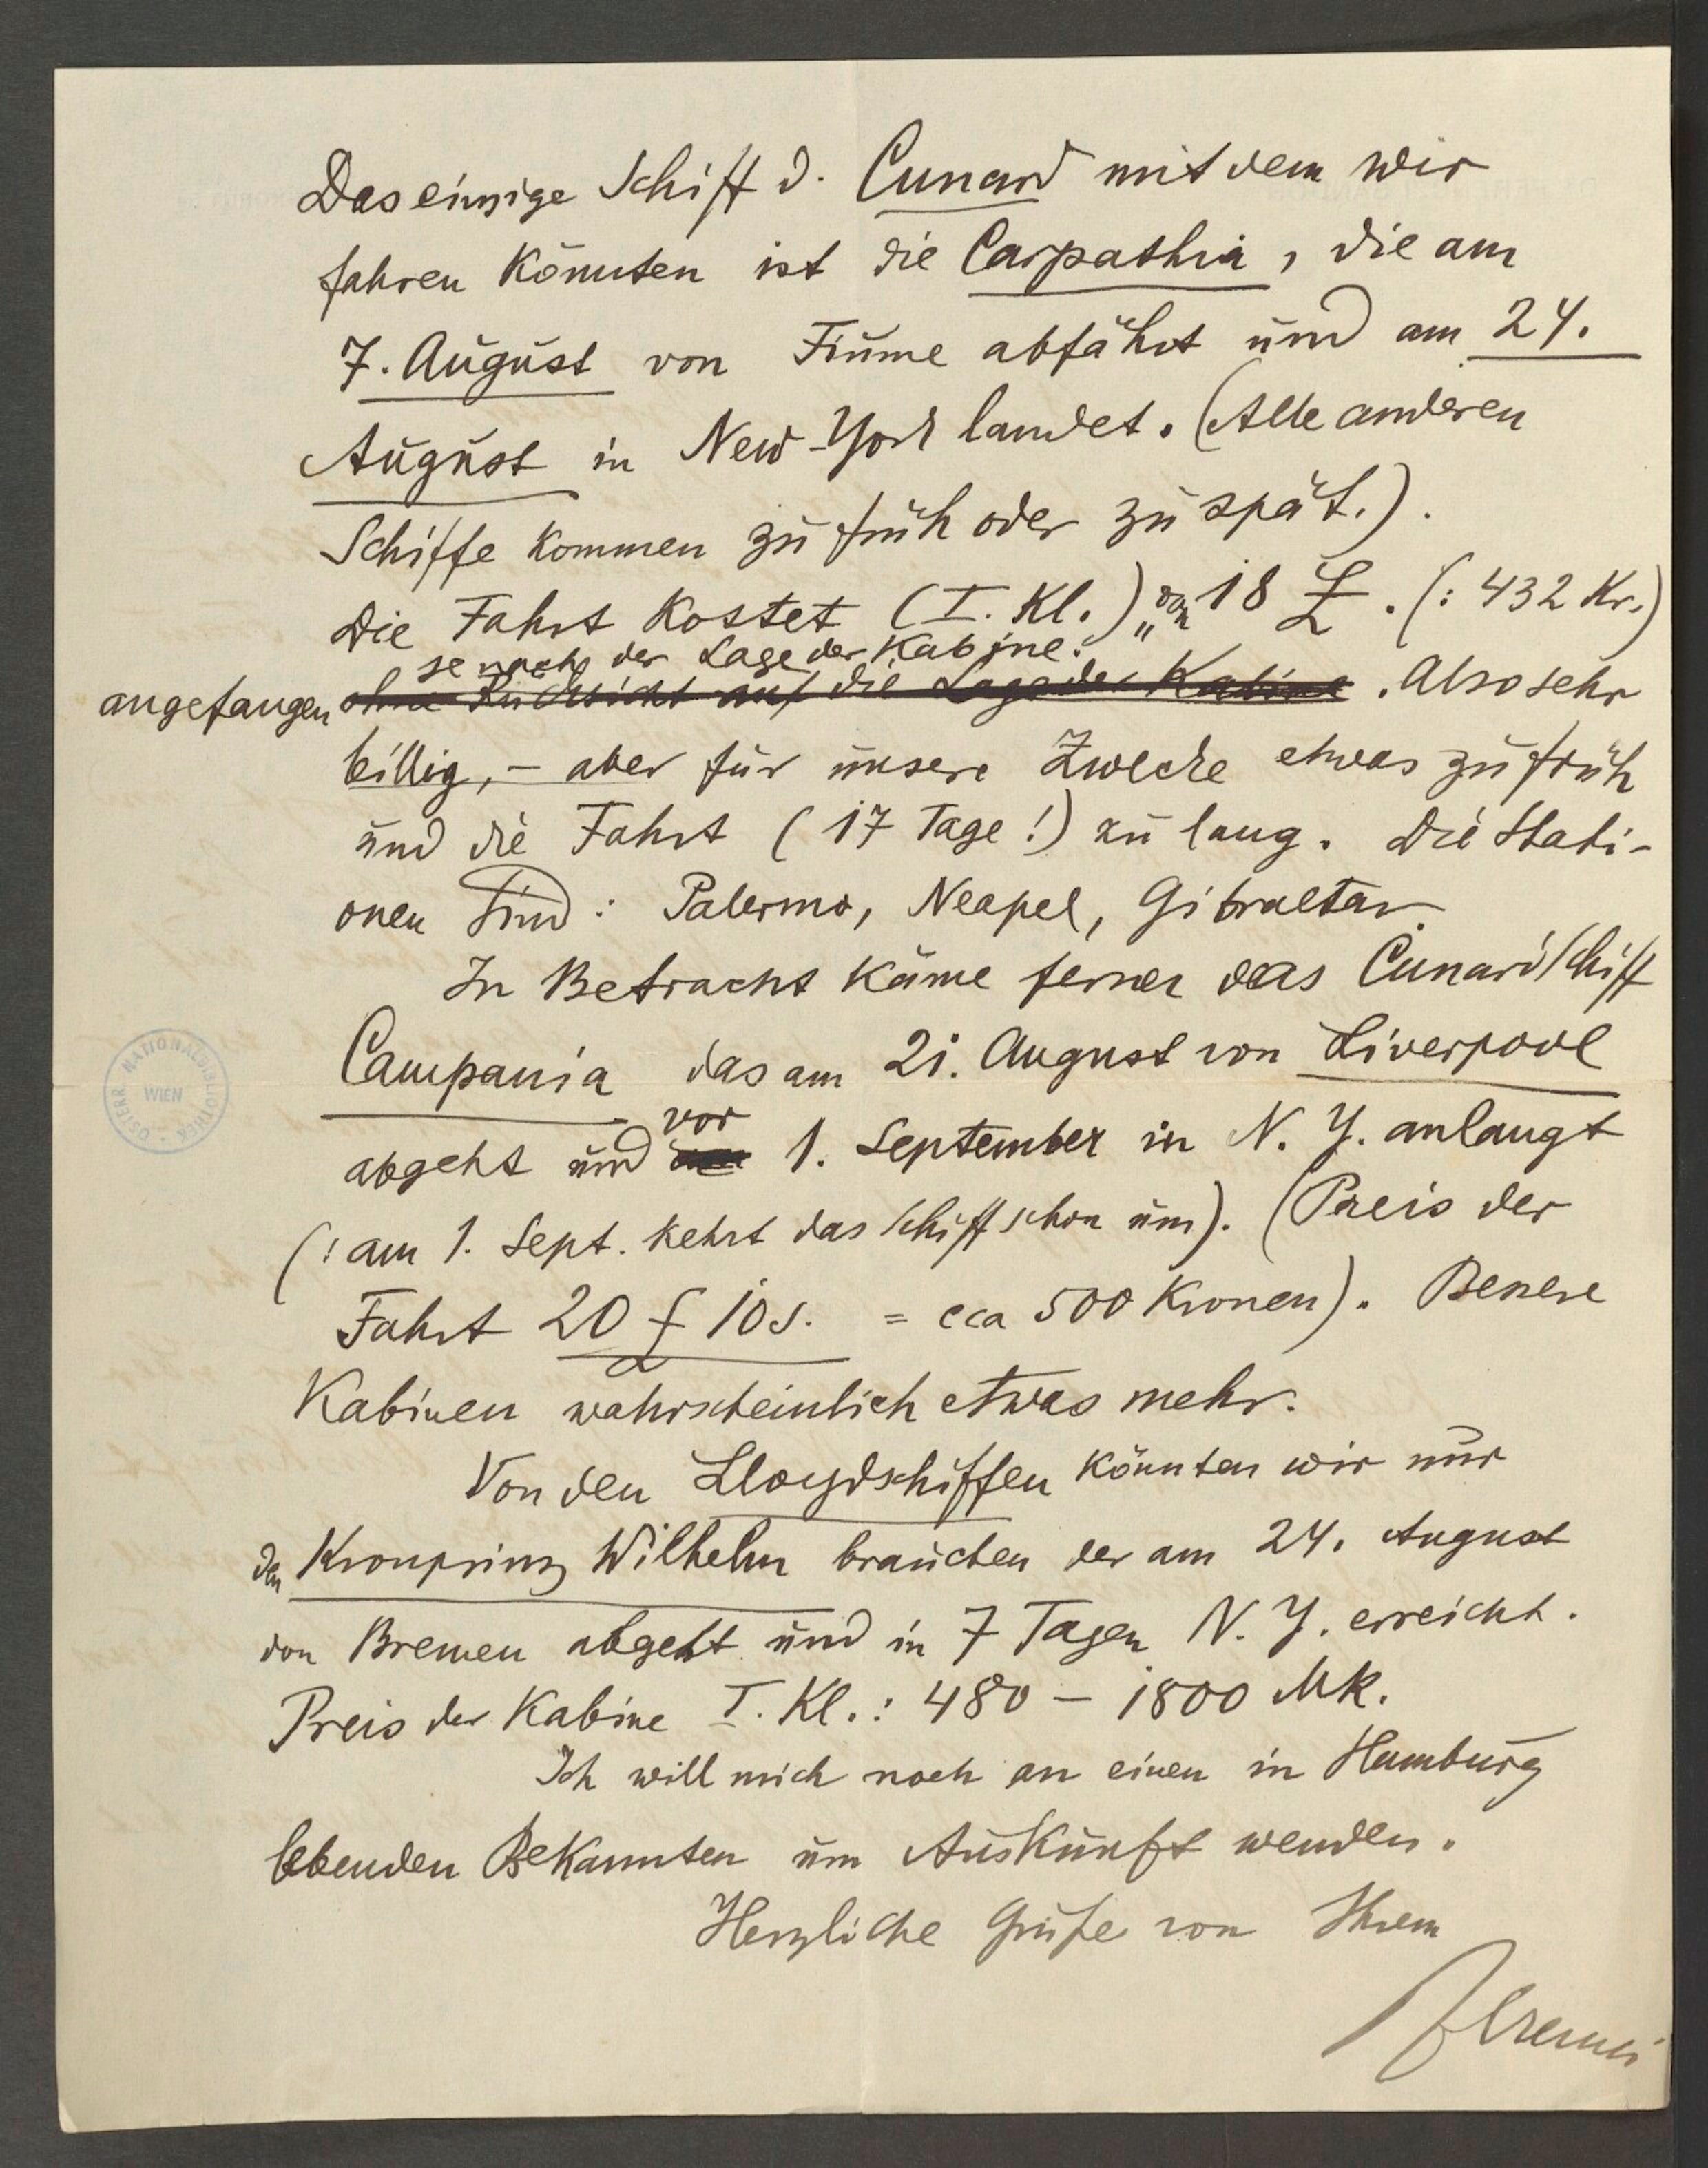 Das einzige Schiff d. Cunard mit dem wir
fahren könnten ist die Carpathia, die am
7. August von Fiume abfährt und am 24.
August in New-York landet. (Alle anderen
Schiffe kommen zu früh oder zu spät.).
Die Fahrt kostet (I. Kl.) von 18 £. (: 432 Kr.)
je nach der Lage der Kabine.
angefangen ohne Rücksicht auf die Lage der Kabine. Also sehr
billig, – aber für unsere Zwecke etwas zu früh
und die Fahrt (17 Tage!) zu lang. Die Stati-
onen sind: Palermo, Neapel, Gibraltar.
In Betracht käme ferner das Cunardschiff
Campania das am 21. August von Liverpool
vor
abgeht und am 1. September in N. Y. anlangt
(: am 1. Sept. kehrt das Schiff schon um). (Preis der
Fahrt 20 £ 10 s. = cca 500 Kronen). Bessere
Kabinen wahrscheinlich etwas mehr.
Von den Lloydschiffen könnten wir nur
den Kronprinz Wilhelm brauchen der am 24. August
von Bremen abgeht und in 7 Tagen N. Y. erreicht.
Preis der Kabine I. Kl.: 480 – 1800 Mk.
Ich will mich noch an einen in Hamburg
lebenden Bekannten um Auskunft wenden.
Herzliche Grüße von Ihrem
Ferenczi
ÖSTERR. NATIONALBIBLIOTHEK
WIEN